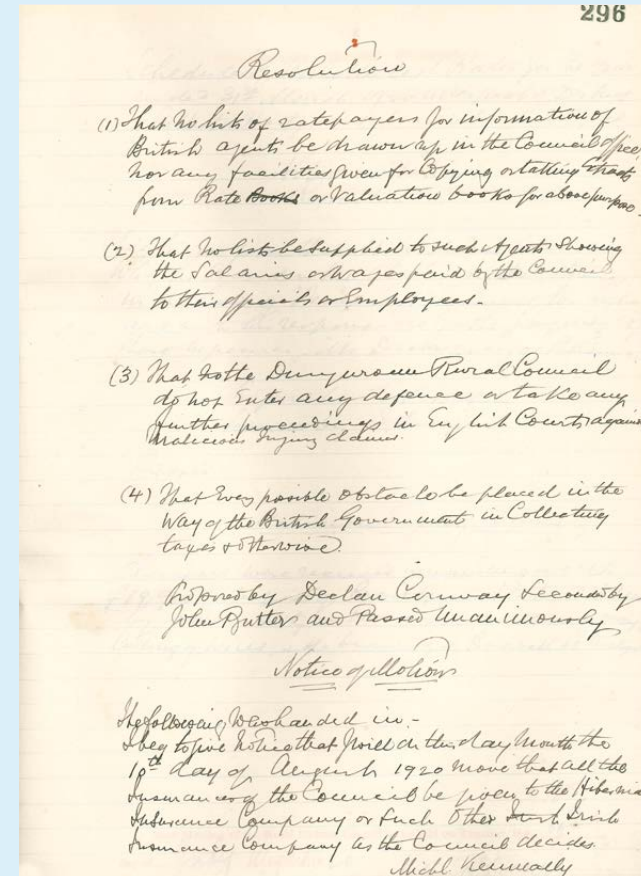 296
Resolution
(1) That no lists of ratepayers for information of
British agents be drawn up in the Council office
nor any facilities given for Copying or taking extracts
from Rate Books or Valuation books for above purpose.
(2) That no lists be supplied to such Agents showing
the Salaries or Wages paid by the Council
to their officials or Employees.
(3) That the Rural Council
do not Enter any defence or take any
further proceedings in English Courts against
malicious injury claims.
(4) That Every possible obstacle be placed in the
Way of the British Government in Collecting
taxes & otherwise.
Proposed by Declan Conway Seconded by
John Butler and Passed Unanimously
Notice of Motion
The following was handed in:-
I beg to give Notice that I will on this day Month the
10th day of August 1920 move that all the
Insurances of the Council be given to the Hibernian
Insurance Company or such other Irish Irish
Insurance Company as the Council decides.
Michl Kenneally